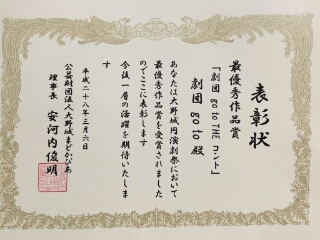 表彰状
最優秀作品賞
『劇団 go to THE コント』
劇団 go to 殿
あなたは大野城円演劇祭において
最優秀作品賞を受賞されました
のでここに表彰します
今後一層の活躍を期待いたしま
す
平成二十八年三月六日
公益財団法人大野城まどかぴあ
理事長 安河内俊明